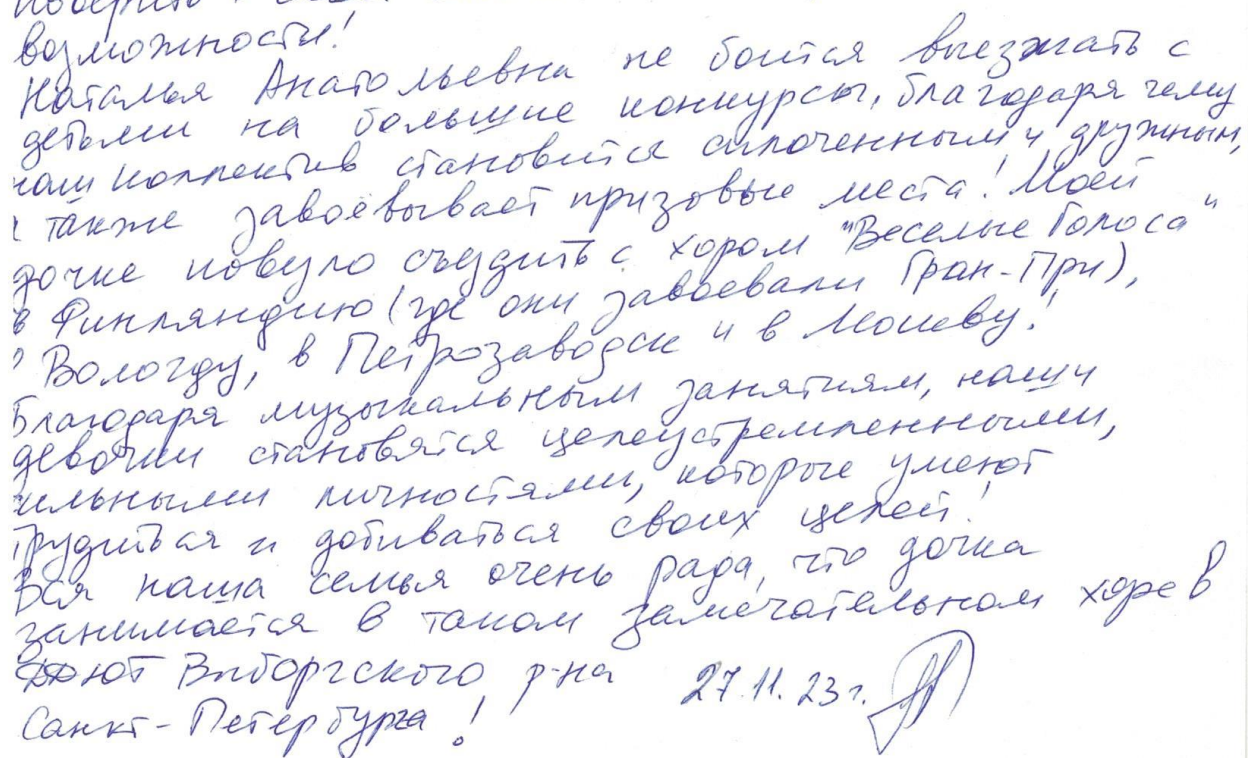 возможности!
Наталья Анатольевна не боится выезжать с
детьми на большие конкурсы, благодаря чему
наш коллектив становится сплоченным и дружным,
также завоёвывает призовые места! Моей
дочке повезло съездить с хором "Веселые Голоса"
в Финляндию (где они завоевали Гран-При),
Вологду, в Петрозаводск и в Москву!
Благодаря музыкальным занятиям, наши
девочки становятся целеустремленными,
сильными личностями, которые умеют
трудиться и добиваться своих целей!
Вся наша семья очень рада, что дочка
занимается в таком замечательном хоре в
ДДЮТ Выборгского р-на
27.11.23 г.
Санкт-Петербурга!